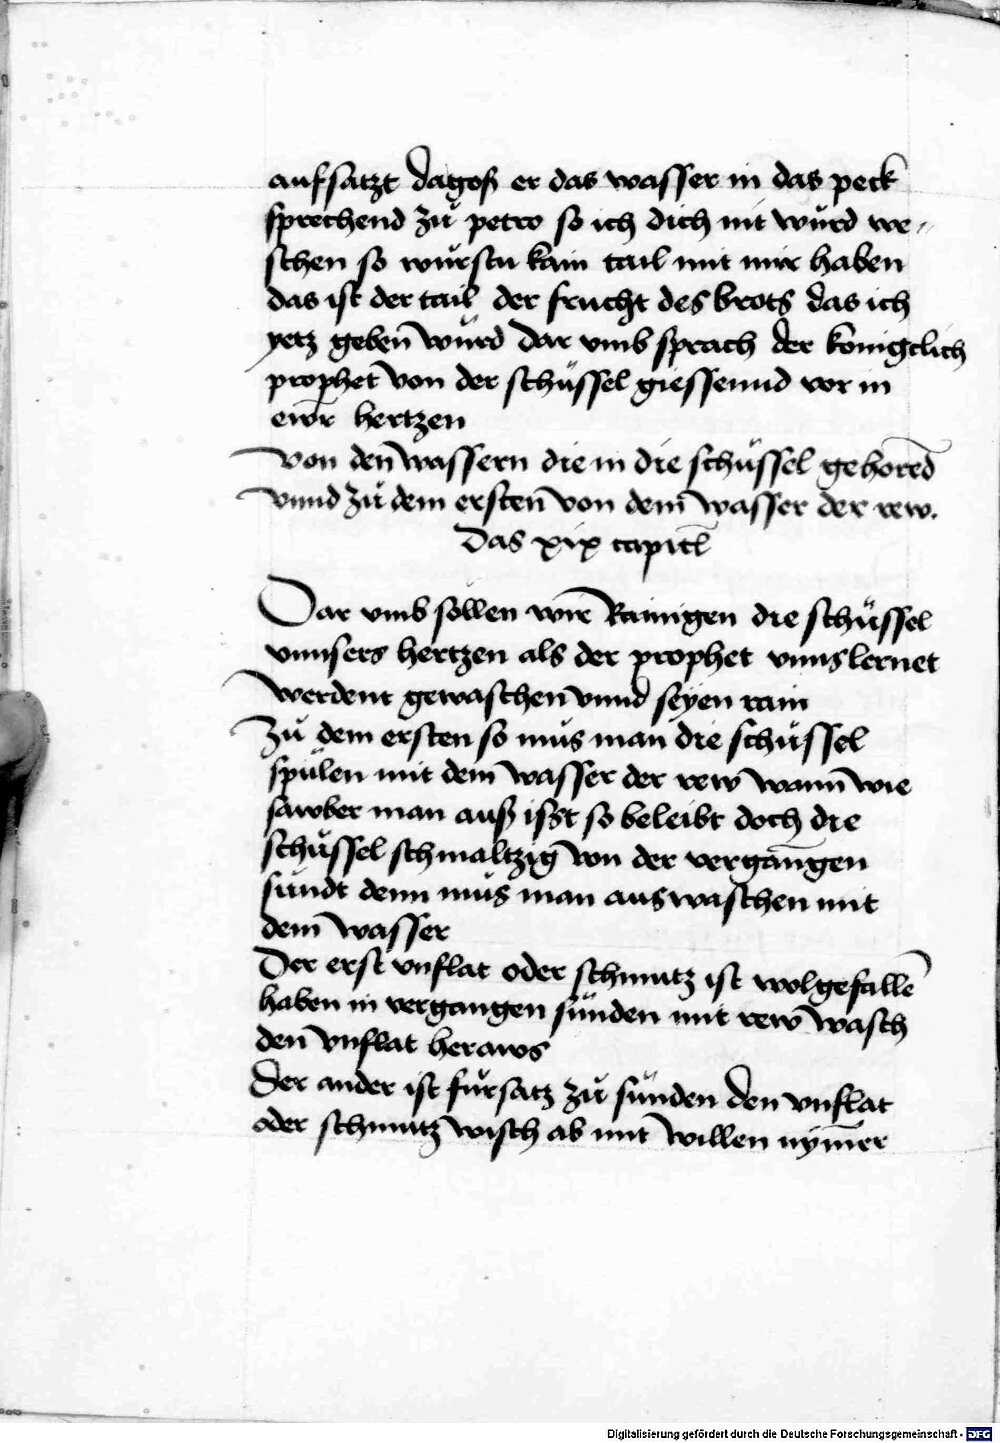 aufsatzt dagoß er das wasser in das peck
sprechend zů petro so ich dich nit würd we⸗
schen so würstu kain tail mit mir haben
das ist der tail der frucht des brots das ich
yetz gebeñ würd Dar vmb sprach der königclich
prophet von der schüssel giessennd vor in
ewr̄ hertzen
Von deñ wassern die in die schüssel gehored̄
vnnd zů dem ersteñ von dem̄ wasser der rew.
Das xix capitl̄
Dar vmb söllen wir Rainigen die schüssel
vnnsers hertzen als der prophet vnns lernet
Werdent gewaschen vnnd seyen rain
Zů dem ersten so můs man die schüssel
spülen mit dem̄ wasser der rew wann̄ wie
sawber man auß isst so beleibt doch die
schüssel schmaltzig von der vergāngen
sündt denn můs man aus waschen mit
dem̄ wasser
Der erst vnflat oder schmutz ist wolgefallē
haben in vergangen sünden mit rew wasch
den vnflat heraws
Der ander ist fürsatz zů sünden den vnflat
oder schmutz wisch ab mit willen nym̄er
Digitalisierung gefördert durch die Deutsche Forschungsgemeinschaft - DFG